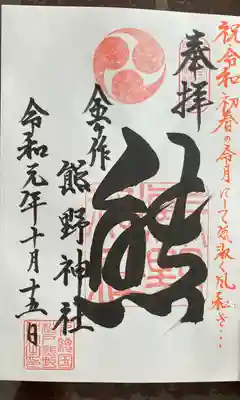 祝・令和
初春の令月にして気淑く風和ぎ…
奉拝
熊
金ケ作
熊野神社
令和元年十月十五日